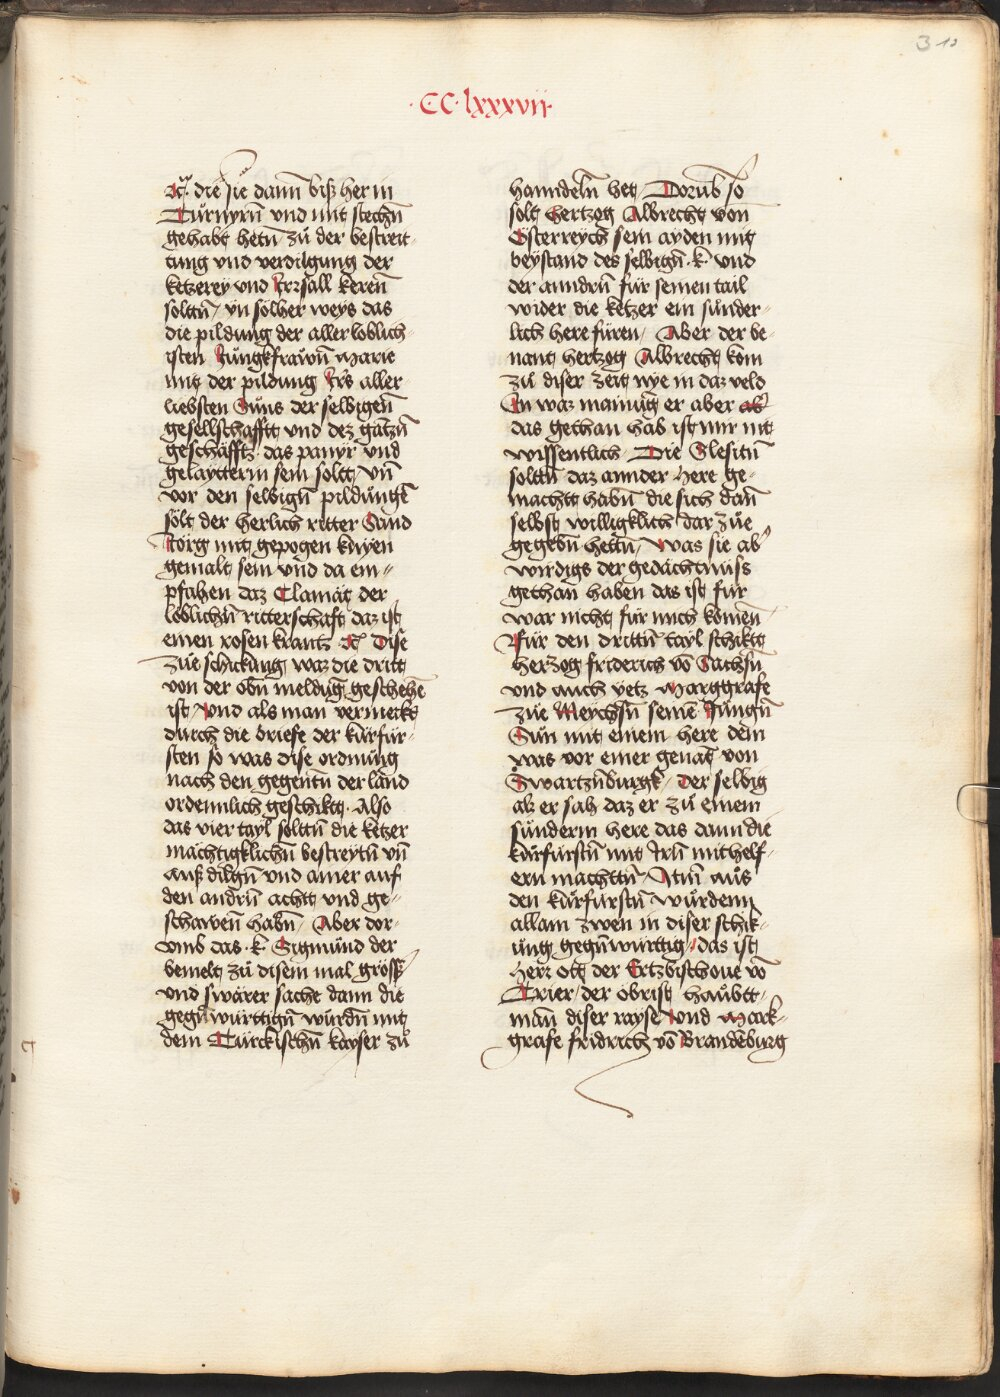 310
·CC·lxxxvii·
ꝛc̃. die sie dann biß her in
Turnyrn̄ vnd mit stechn̄
gehabt hetn̄ / zů der bestreit-
tung vnd verdilgung der
ketzerey vnd Jrrsall keren̄
solttn̄ / yn sölher weys das
die pildung der aller loblich-
isten Jungkfrawn̄ Marie
mit der pildung Jrs aller
liebsten Suns der selbigen̄
gesellschafftt vnd dez gātzn̄
geschäfftz das panyr vnd
gelaytterin sein soltt / vn̄
vor den selbign̄ pildungē
sölt der herlich ritter Sand
Jörg mit gepogen knyen
gemalt sein vnd da em-
pfahen daz Clamāt der
löblichn̄ ritterschaft daz ist
einen rosen krantz ꝛc̃ Dise
zůe schickung waz die dritt
von der obn̄ meldūg geschehē
ist / Vnd als man vermerkt
durch die briefe der kůrfůr-
sten so was dise ordnung
nach den gegentn̄ der land
ordennlich geschiktt · Also
das vier tayl soltn̄ die ketzer
mächtigklichn̄ bestreytn̄ vn̄
auß dilgn̄ vnd ainer auf
den andrn̄ achtt vnd ge-
schawen̄ habn̄ / Aber dor-
vmb das · k · Sigmund der
bemelt zů disem mal größ̉
vnd swärer sache dann die
gegn̄ württign̄ wurdn̄ mit
dem Türckischn̄ kayser zů
hanndeln̄ het / Dorub̄ so
solt Hertzog Albrecht von
Osterreych sein ayden mit
beystand des selbign̄ · k · vnd
der anndrn̄ für seinen tail
wider die ketzer ein sunder-
lich here füren / Aber der be-
nant hertzog Albrecht kom
zů diser zeit nye in daz veld
In waz mainūg er aber
das gethan hab ist mir nit
wissentlich / Die Slesitn̄
soltn̄ daz annder here ge-
machtt habn̄ die sich dan̄
selbst willigklich dar zůe
gegebn̄ hettn̄ / Was sie ab̉
wirdigs der gedächtnüss
gethan haben das ist für
war nicht für mich komen̄
Für den drittn̄ tayl schiktt
hertzog friderich vō Sachsn̄
vnd auch yetz Marggrafe
zůe Meychsn̄ seinē Jungn̄
Sun mit einem here dem
was vor einer genāt von
Swartzn̄burgk / Der selbig
alz er sah daz er zů einem
sunderm here das dann die
kurfürstn̄ mit Jrn̄ mithelf-
ern machttn̄ / Nun aus
den kurfürstn̄ wurdenn
allain zwen in diser schik-
ung gegn̄württig / das ist
Herr Ott der Ertzbischoue vō
Trier / der obrist haubtt-
man̄ diser rayse vnd Mark-
grafe fridrich vō Brandēburg